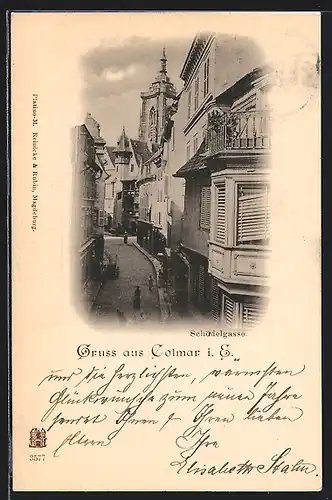 Platino-M. Reinicke & Rubin, Magdeburg.
Schädelgasse.
Gruss aus Colmar i. E.
und die herzlichsten, wärmsten
Glückwünsche zum neuen Jahre
sendet Ihnen & Ihren lieben
Eltern Ihre
Elisabeth Stahn
3577